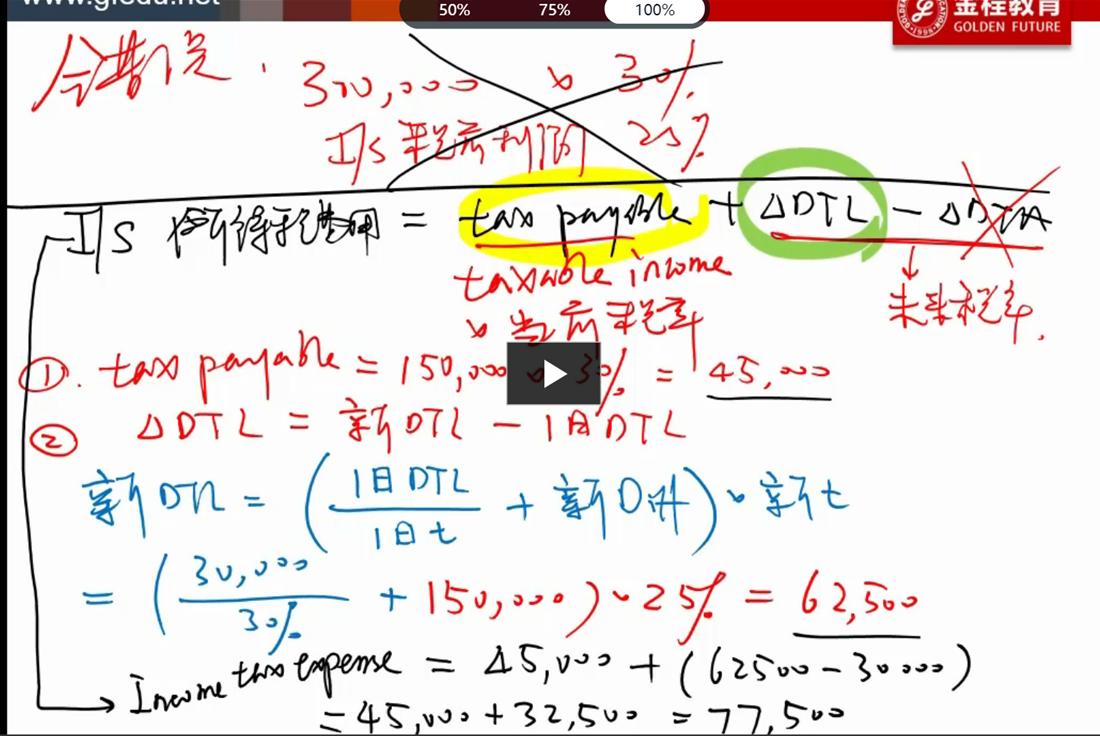 www.gfedu.net
50% 75% 100%
金程教育
GOLDEN FUTURE
会营税. 300,000 × 30%
I/S 税前利润 25%
I/S 所得税费用 = tax payable + ΔDTL - ΔDTA
taxable income
× 当前税率
未来税率.
①. tax payable = 150,000 × 30% = 45,000
② ΔDTL = 新DTL - 旧DTL
新DTL = (旧DTL/旧t + 新Diff) · 新t
= (30,000/30% + 150,000) · 25% = 62,500
Income tax expense = 45,000 + (62500 - 30000)
= 45,000 + 32,500 = 77,500